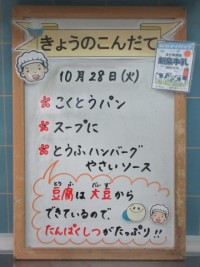 きょうのこんだて
10月28日(火)
こくとうパン
スープに
とうふハンバーグ
やさいソース
とうふ だいず
豆腐は大豆から
できているので、
たんぱくしつがたっぷり!!